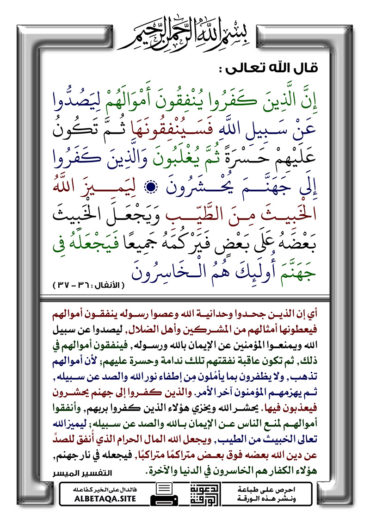 بسم الله الرحمن الرحيم
قال الله تعالى :
إِنَّ الَّذِينَ كَفَرُوا يُنْفِقُونَ أَمْوَالَهُمْ لِيَصُدُّوا
عَنْ سَبِيلِ اللَّهِ فَسَيُنْفِقُونَهَا ثُمَّ تَكُونُ
عَلَيْهِمْ حَسْرَةً ثُمَّ يُغْلَبُونَ وَالَّذِينَ كَفَرُوا
إِلَى جَهَنَّمَ يُحْشَرُونَ ۞ لِيَمِيزَ اللَّهُ
الْخَبِيثَ مِنَ الطَّيِّبِ وَيَجْعَلَ الْخَبِيثَ
بَعْضَهُ عَلَى بَعْضٍ فَيَرْكُمَهُ جَمِيعًا فَيَجْعَلَهُ فِي
جَهَنَّمَ أُولَئِكَ هُمُ الْخَاسِرُونَ
( الأنفال : ٣٦ - ٣٧ )
أي إن الذين جحدوا وحدانية الله وعصوا رسوله ينفقون أموالهم
فيعطونها أمثالهم من المشركين وأهل الضلال, ليصدوا عن سبيل
الله ويمنعوا المؤمنين عن الإيمان بالله ورسوله, فينفقون أموالهم في
ذلك, ثم تكون عاقبة نفقتهم تلك ندامة وحسرة عليهم; لأن أموالهم
تذهب, ولا يظفرون بما يأمُلون مِن إطفاء نور الله والصد عن سبيله,
ثم يهزمهم المؤمنون آخر الأمر. والذين كفروا إلى جهنم يحشرون
فيعذبون فيها. يحشر الله ويخزي هؤلاء الذين كفروا بربهم, وأنفقوا
أموالهم لمنع الناس عن الإيمان بالله والصد عن سبيله; ليميز الله
تعالى الخبيث من الطيب, ويجعل الله المال الحرام الذي أُنفق للصدِّ
عن دين الله بعضه فوق بعض متراكمًا متراكبًا, فيجعله في نار جهنم,
هؤلاء الكفار هم الخاسرون في الدنيا والآخرة. التفسير الميسر
احرص على طباعة
ونشر هذه الورقة
ورقة
دعوية
فالدال على الخير كفاعله
ALBETAQA.SITE